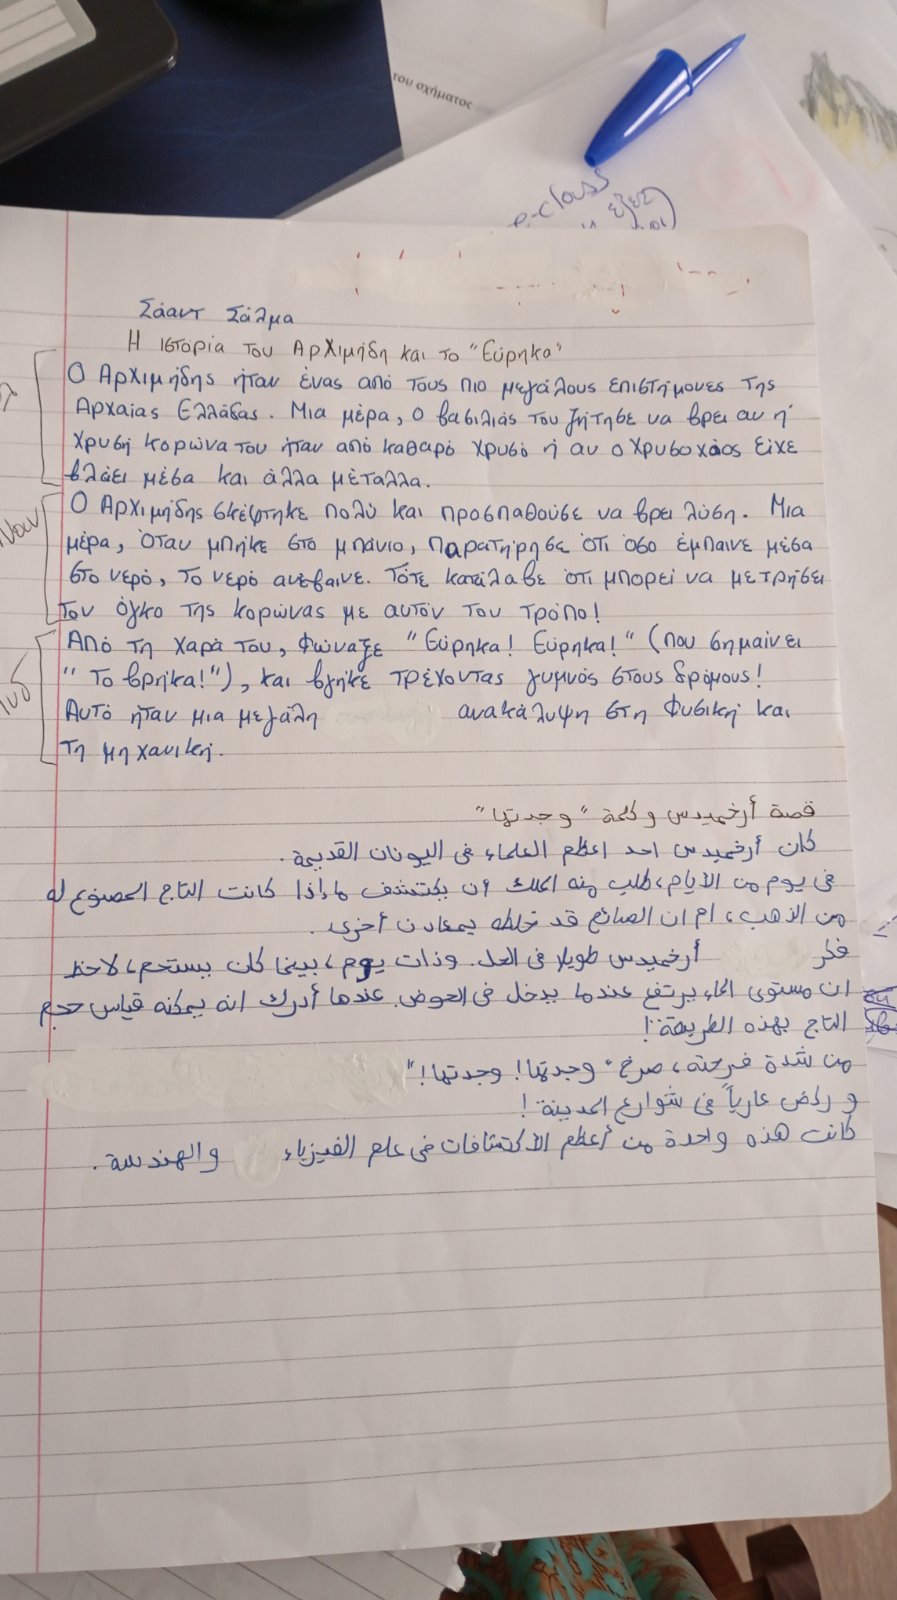 του οχήματος
e-class
Σάαντ Σάλμα
Η ιστορία του Αρχιμήδη και το "Εύρηκα"
Ο Αρχιμήδης ήταν ένας από τους πιο μεγάλους επιστήμονες της
Αρχαίας Ελλάδας. Μια μέρα, ο βασιλιάς του ζήτησε να βρει αν η
χρυσή κορώνα του ήταν από καθαρό χρυσό ή αν ο χρυσοχόος είχε
βλάει μέσα και άλλα μέταλλα.
Ο Αρχιμήδης σκέφτηκε πολύ και προσπαθούσε να βρει λύση. Μια
μέρα, όταν μπήκε στο μπάνιο, παρατήρησε ότι όσο έμπαινε μέσα
στο νερό, το νερό ανέβαινε. Τότε κατάλαβε ότι μπορεί να μετρήσει
τον όγκο της κορώνας με αυτόν τον τρόπο!
Από τη χαρά του, φώναξε "Εύρηκα! Εύρηκα!" (που σημαίνει
"Το βρήκα!"), και βγήκε τρέχοντας γυμνός στους δρόμους!
Αυτό ήταν μια μεγάλη ανακάλυψη στη φυσική και
τη μηχανική.
قصة أرخميدس و كلمة "وجدتها"
كان أرخميدس احد اعظم العلماء في اليونان القديمة.
في يوم من الأيام، طلب منه الملك أن يكتشف ما إذا كانت التاج المصنوع له
من الذهب، ام ان الصائغ قد خلطه بمعادن أخرى.
فكر أرخميدس طويلا في الحل. وذات يوم، بينما كان يستحم، لاحظ
ان مستوى الماء يرتفع عندما يدخل في الحوض. عندها أدرك انه يمكنه قياس حجم
التاج بهذه الطريقة!
من شدة فرحته، صرخ "وجدتها! وجدتها!"
و ركض عارياً في شوارع المدينة!
كانت هذه واحدة من أعظم الأكتشافات في علم الفيزياء والهندسة.